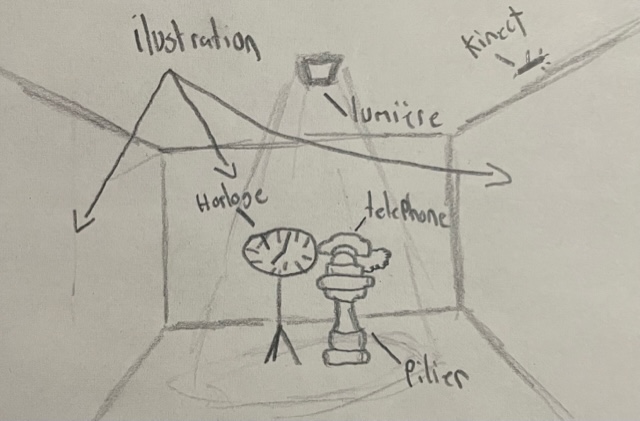 ilustration
Kinect
lumière
Horloge
telephone
Pilier